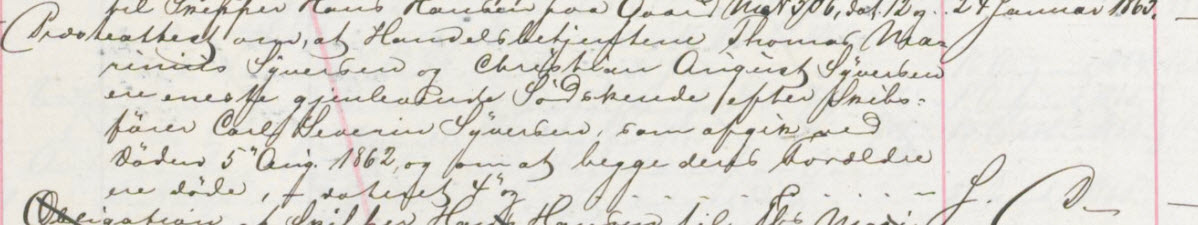 til Skipper Hans Hansen paa Gaard Mat 306, dat. 12 og 24 Januar 1863.
Præsteattest om, at Handelsbetjentene Thomas Ma-
rinius Syversen og Christian August Syversen
ere eneste gjenlevende Södskende efter Skibs-
förer Carl Severin Syversen, som afgik ved
Döden 5" Aug. 1862, og om at begge deres Forældre
ere döde, - dateret 4" og
Obligation af Skipper Hans Hansen til